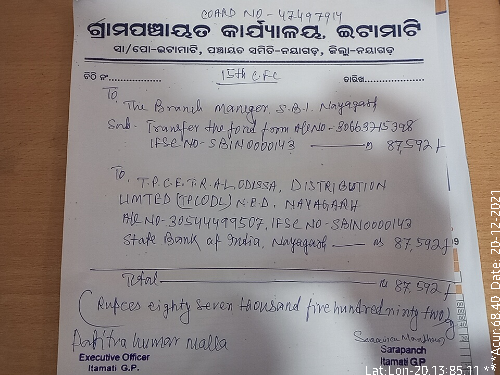 COARD NO - 47497914
ଗ୍ରାମପଞ୍ଚାୟତ କାର୍ଯ୍ୟାଳୟ, ଇଟାମାଟି
ସା/ପୋ-ଇଟାମାଟି, ପଞ୍ଚାୟତ ସମିତି-ନୟାଗଡ଼, ଜିଲ୍ଲା-ନୟାଗଡ଼
ଚିଠି ନଂ............... 15th C.F.C ତାରିଖ...................
To,
The Branch Maneger S.B.I. Nayagarh
Sub- Transfer the fond form A/c NO- 30663715398
IFSC NO- SBIN0000143 ——— 87,592/-
To
T.P.C.E.T.R.A.L ODISSA, DISTRIBUTION
LIMTED (TPCODL) N.E.D. NAYAGARH
A/c NO- 30544499507, IFSC NO- SBIN0000143
State Bank of India, Nayagarh —— Rs 87,592/-
Total ——— Rs 87,592/-
(Rupces eighty seven thousand five hundred ninty two)
kumar malla
Executive Officer
Itamati G.P.
Sarapanch
Itamati G.P
Lat:Lon-20.13:85.11 **
**Acu: 68.40 Date: 20-12-2021